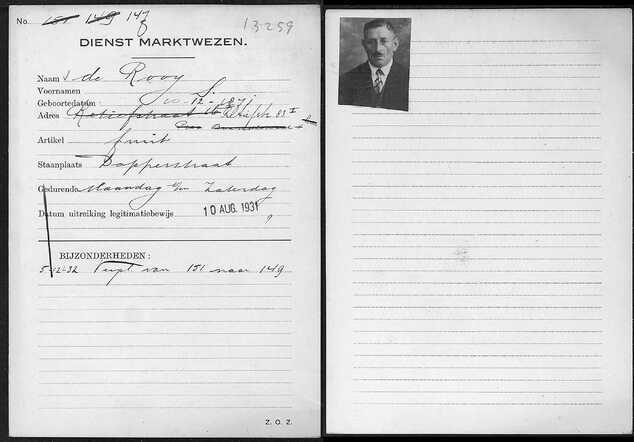 No. 151 149 147
13-259
DIENST MARKTWEZEN.
Naam de Rooy
Voornamen J.
Geboortedatum 10-12-1871
Adres Retiefstraat
Artikel fruit
Staanplaats Dapperstraat
Gedurende Maandag t/m Zaterdag
Datum uitreiking legitimatiebewijs 10 AUG. 1931
BIJZONDERHEDEN:
5-12-32 Verpl. van 151 naar 149
Z. O. Z.